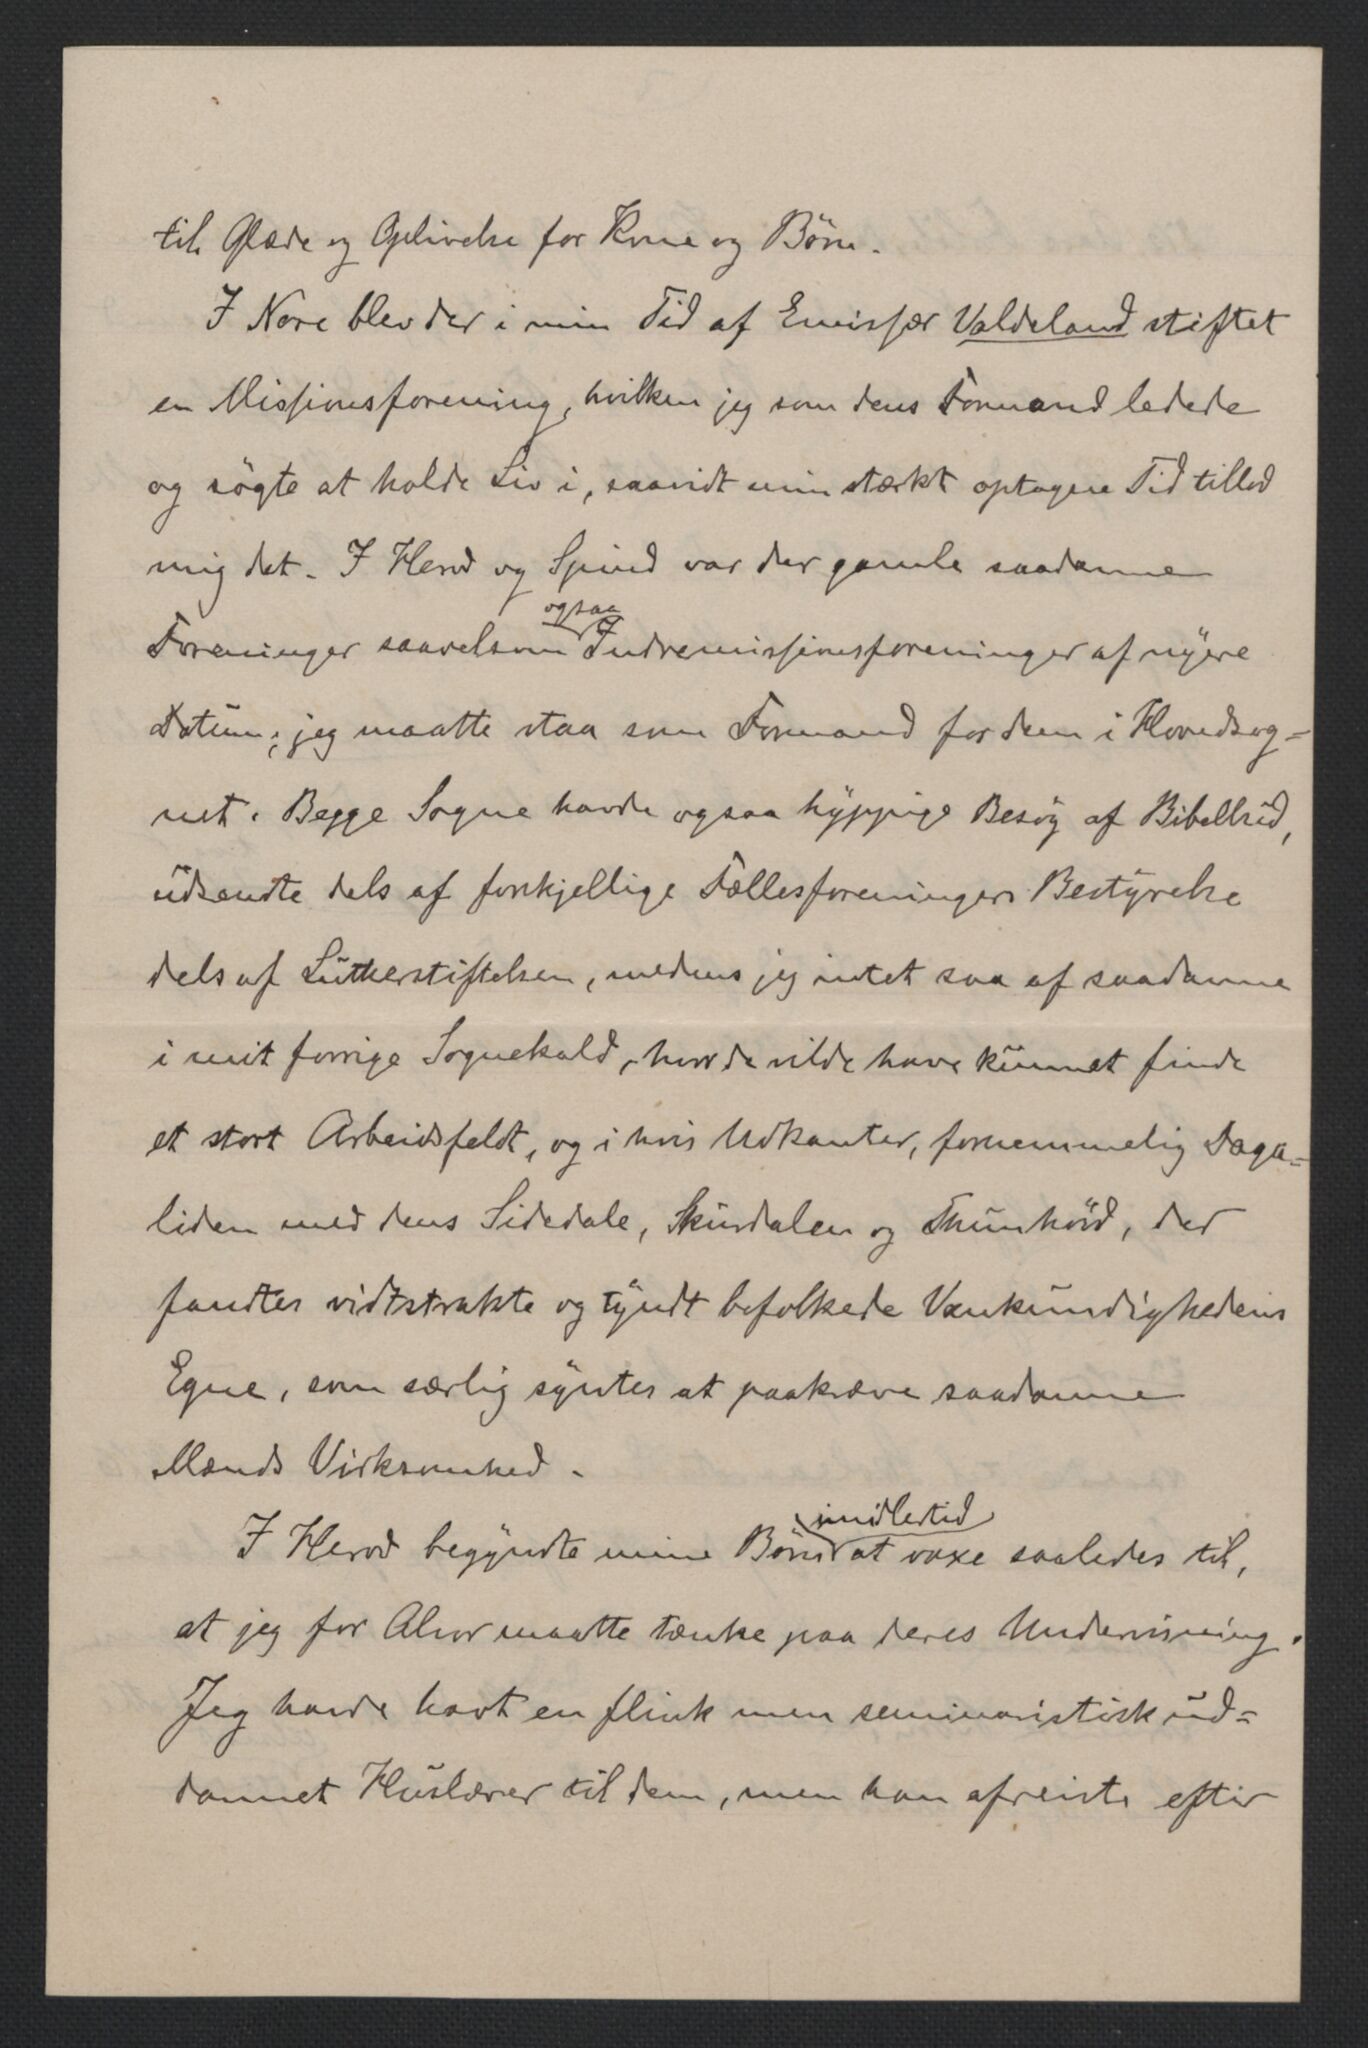 til Glæde og Oplivelse for Kone og Børn.
I Nore blev der i min Tid af Emissær Valdeland stiftet
en Missionsforening, hvilken jeg som dens Formand ledede
og søgte at holde Liv i, saavidt min stærkt optagne Tid tillod
mig det. I Herod og Spind var der gamle saadanne
Foreninger saavelsom ogsaa Indremissionsforeninger af nyere
Datum; jeg maatte staa som Formand for dem i Hovedsog=
net. Begge Sogne havde ogsaa hyppige Besøg af Bibelbud,
udsendte dels af forskjellige Fællesforeningers Bestyrelse
dels af Lutherstiftelsen, medens jeg intet saa af saadanne
i mit forrige Sognekald, hvor de vilde have kunnet finde
et stort Arbeidsfeldt, og i hvis Udkanter, fornemmelig Daga=
liden med dens Sidedale, Skurdalen og Thunhövd, der
fandtes vidtstrakte og tyndt befolkede Vankundighedens
Egne, som særlig syntes at paakræve saadanne
Mænds Virksomhed.
I Herod begyndte mine Børn imidlertid at voxe saaledes til,
at jeg for Alvor maatte tænke paa deres Undervisning.
Jeg havde havt en flink men seminaristisk ud=
dannet Huslærer til dem, men han afreiste efter